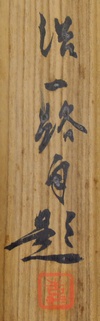 浩一路自題